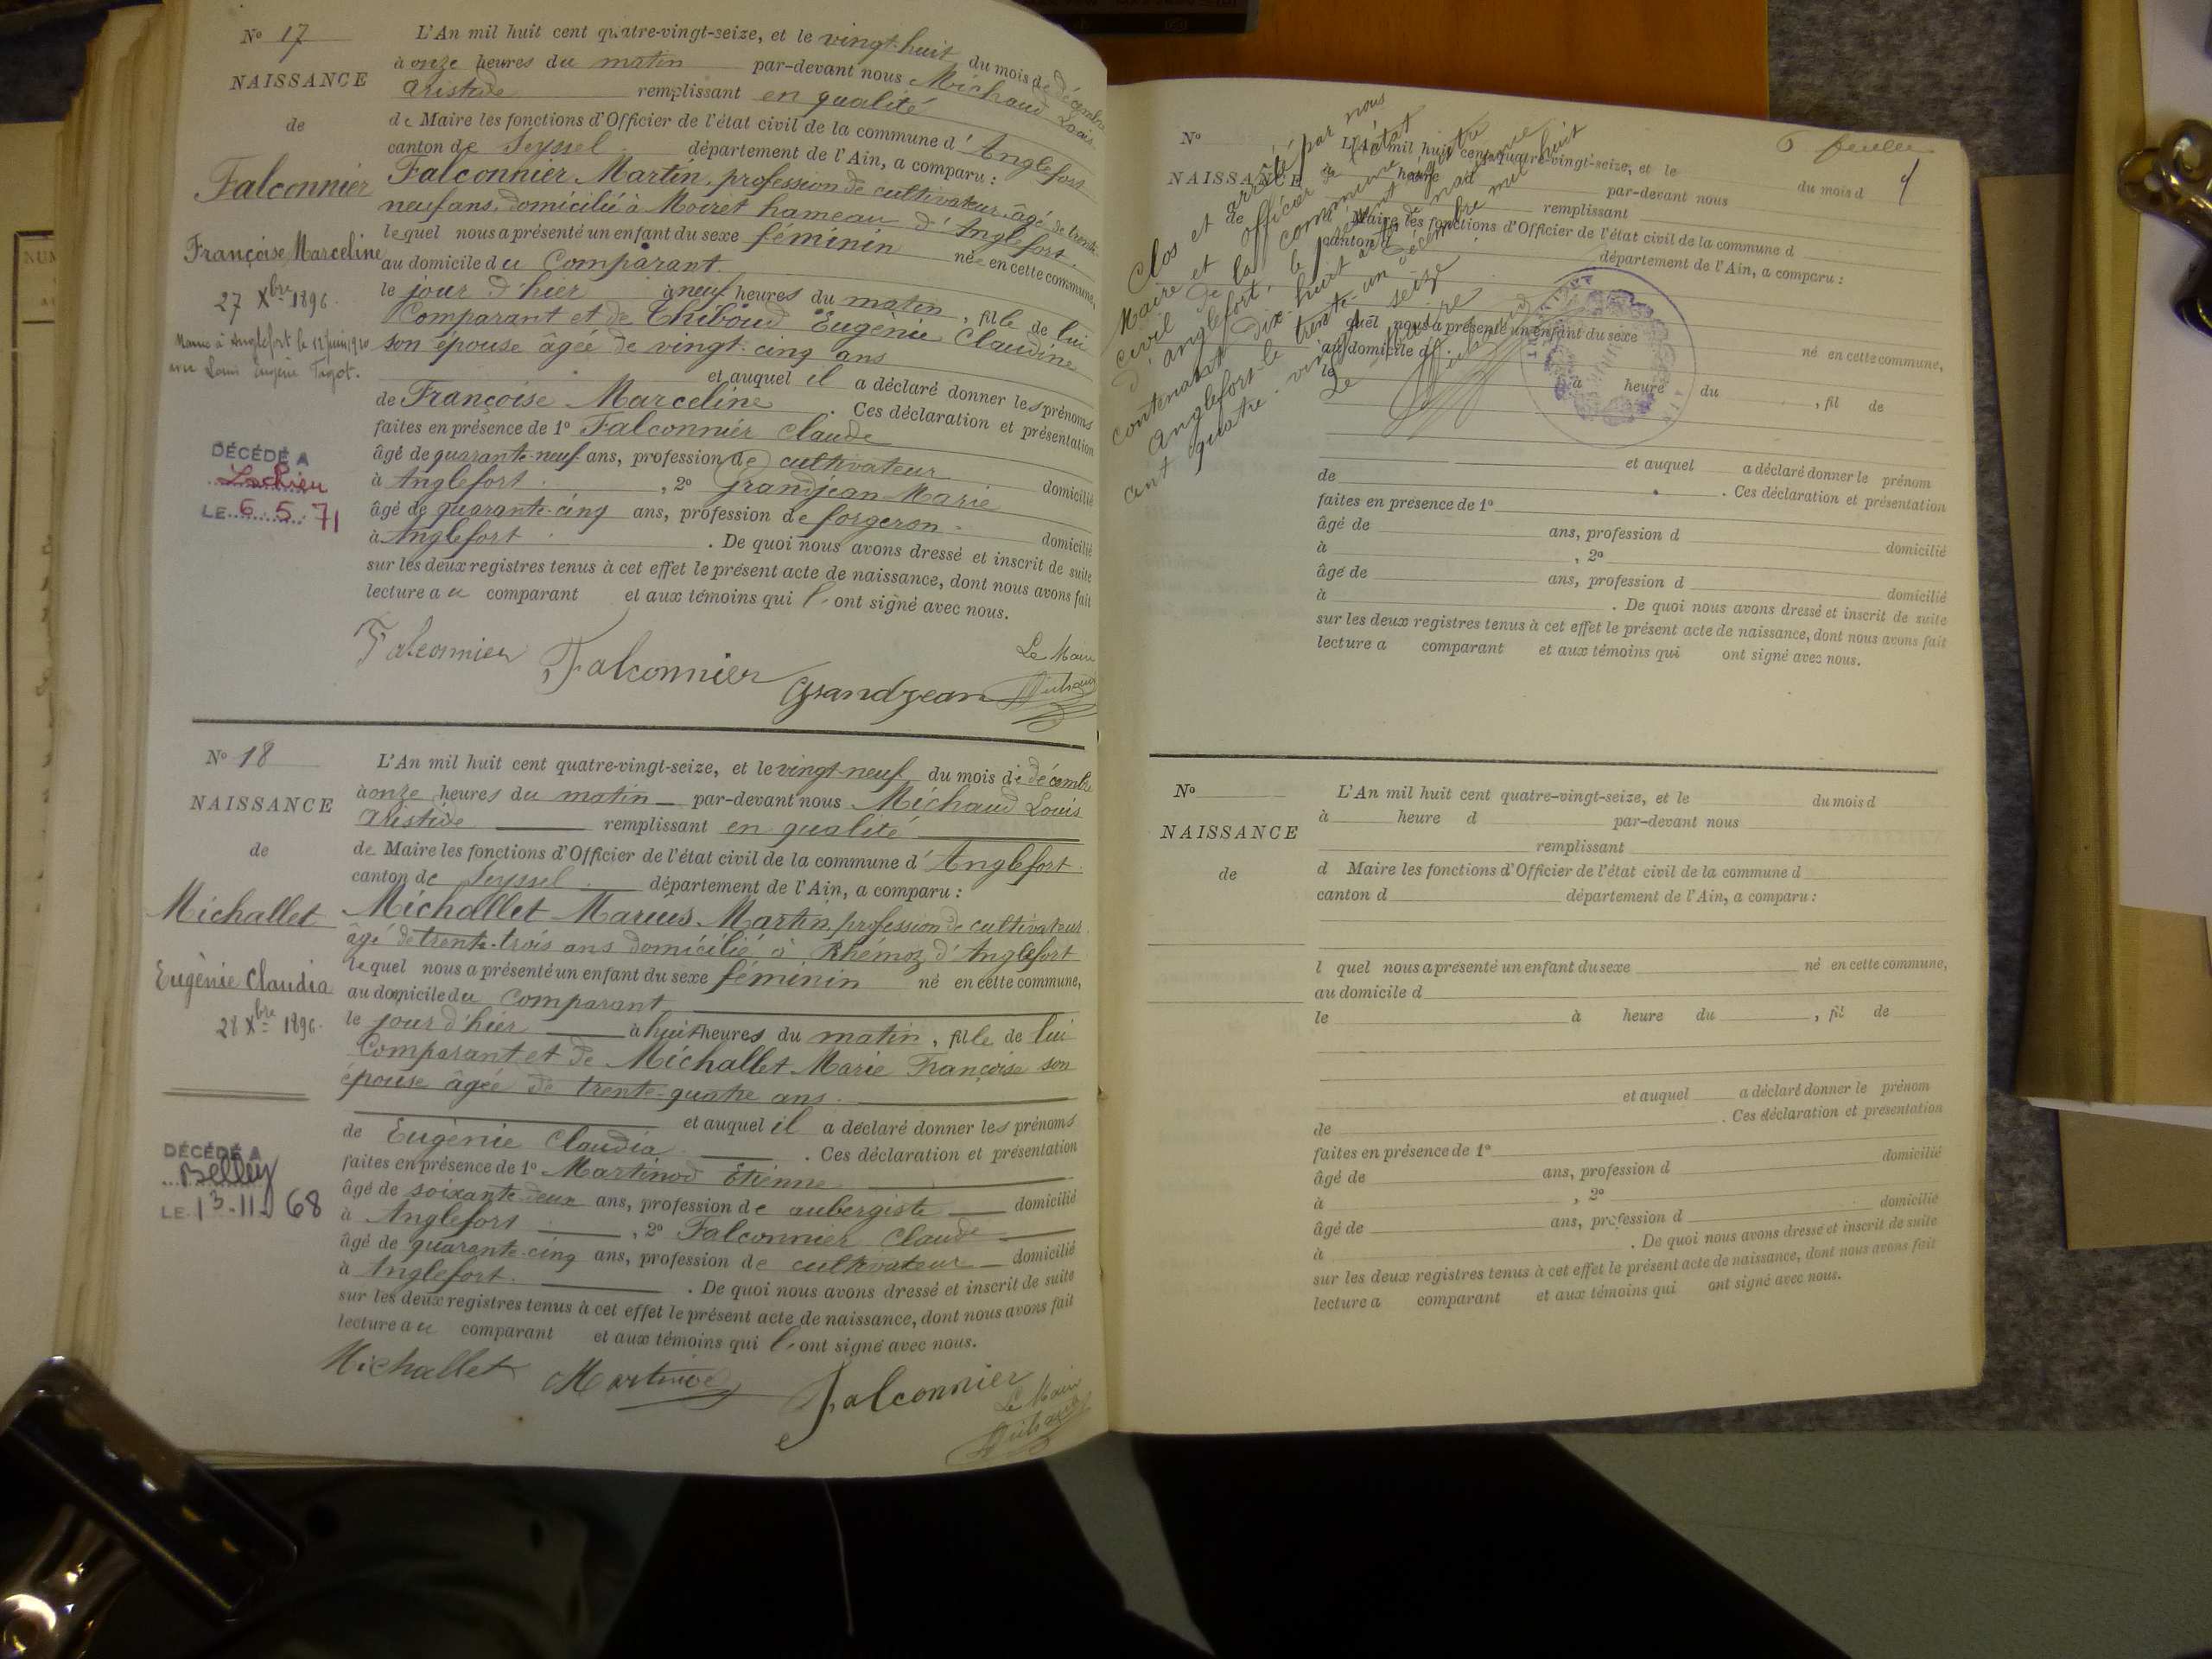 Nº 17
NAISSANCE
de
Falconnier
Françoise Marceline
27 Xbre 1896.
Marcé à Anglefort le 12 juin 1920
avec Louis Eugène
DÉCÉDÉ A
Lochieu
LE 6.5.71
L'An mil huit cent quatre-vingt-seize, et le vingt-huit du mois de décembre
à onze heures du matin par-devant nous Michaud Louis
Aristide remplissant en qualité
de Maire les fonctions d'Officier de l'état civil de la commune d'Anglefort
canton de Seyssel département de l'Ain, a comparu :
Falconnier Martin, profession de cultivateur, âgé de trente
neuf ans, domicilié à Moiret hameau d'Anglefort.
lequel nous a présenté un enfant du sexe féminin née en cette commune,
au domicile du Comparant.
le jour d'hier à neuf heures du matin, fille de lui
Comparant et de Thiboud Eugènie Claudine
son épouse âgée de vingt-cinq ans
et auquel il a déclaré donner les prénoms
de Françoise Marceline. Ces déclaration et présentation
faites en présence de 1º Falconnier Claude
âgé de quarante-neuf ans, profession de cultivateur domicilié
à Anglefort, 2º Grandjean Marie
âgé de quarante-cinq ans, profession de forgeron domicilié
à Anglefort. De quoi nous avons dressé et inscrit de suite
sur les deux registres tenus à cet effet le présent acte de naissance, dont nous avons fait
lecture au comparant et aux témoins qui l'ont signé avec nous.
Le Maire
Falconnier Falconnier Grandjean Michaud
Nº 18
NAISSANCE
de
Michallet
Eugènie Claudia
28 Xbre 1896.
DÉCÉDÉ A
Belley
LE 13.11.68
L'An mil huit cent quatre-vingt-seize, et le vingt-neuf du mois de décembre
à onze heures du matin par-devant nous Michaud Louis
Aristide remplissant en qualité
de Maire les fonctions d'Officier de l'état civil de la commune d'Anglefort.
canton de Seyssel département de l'Ain, a comparu :
Michallet Marius Martin, profession de cultivateur
âgé de trente-trois ans domicilié à Rhémoz d'Anglefort
lequel nous a présenté un enfant du sexe féminin né en cette commune,
au domicile du comparant
le jour d'hier à huit heures du matin, fille de lui
Comparant et de Michallet Marie Françoise son
épouse âgée de trente-quatre ans.
et auquel il a déclaré donner les prénoms
de Eugènie Claudia. Ces déclaration et présentation
faites en présence de 1º Martinod Etienne
âgé de soixante-deux ans, profession de aubergiste domicilié
à Anglefort, 2º Falconnier Claude
âgé de quarante-cinq ans, profession de cultivateur domicilié
à Anglefort. De quoi nous avons dressé et inscrit de suite
sur les deux registres tenus à cet effet le présent acte de naissance, dont nous avons fait
lecture au comparant et aux témoins qui l'ont signé avec nous.
Michallet Martinod Falconnier
Le Maire
Michaud
6
Clos et arrêté par nous
Maire et officier de l'état
civil de la commune
d'Anglefort, le présent registre
contenant dix-huit actes de naissance
Anglefort le trente-un décembre mil huit
cent quatre-vingt seize
Le Maire
Michaud
Nº
NAISSANCE
de
L'An mil huit cent quatre-vingt-seize, et le du mois d
à heure d par-devant nous
remplissant
d Maire les fonctions d'Officier de l'état civil de la commune d
canton d département de l'Ain, a comparu :
l quel nous a présenté un enfant du sexe né en cette commune,
au domicile d
le à heure du , fil de
et auquel a déclaré donner le prénom
de . Ces déclaration et présentation
faites en présence de 1º
âgé de ans, profession d domicilié
à , 2º
âgé de ans, profession d domicilié
à . De quoi nous avons dressé et inscrit de suite
sur les deux registres tenus à cet effet le présent acte de naissance, dont nous avons fait
lecture a comparant et aux témoins qui ont signé avec nous.
Nº
NAISSANCE
de
L'An mil huit cent quatre-vingt-seize, et le du mois d
à heure d par-devant nous
remplissant
d Maire les fonctions d'Officier de l'état civil de la commune d
canton d département de l'Ain, a comparu :
l quel nous a présenté un enfant du sexe né en cette commune,
au domicile d
le à heure du , fil de
et auquel a déclaré donner le prénom
de . Ces déclaration et présentation
faites en présence de 1º
âgé de ans, profession d domicilié
à , 2º
âgé de ans, profession d domicilié
à . De quoi nous avons dressé et inscrit de suite
sur les deux registres tenus à cet effet le présent acte de naissance, dont nous avons fait
lecture a comparant et aux témoins qui ont signé avec nous.